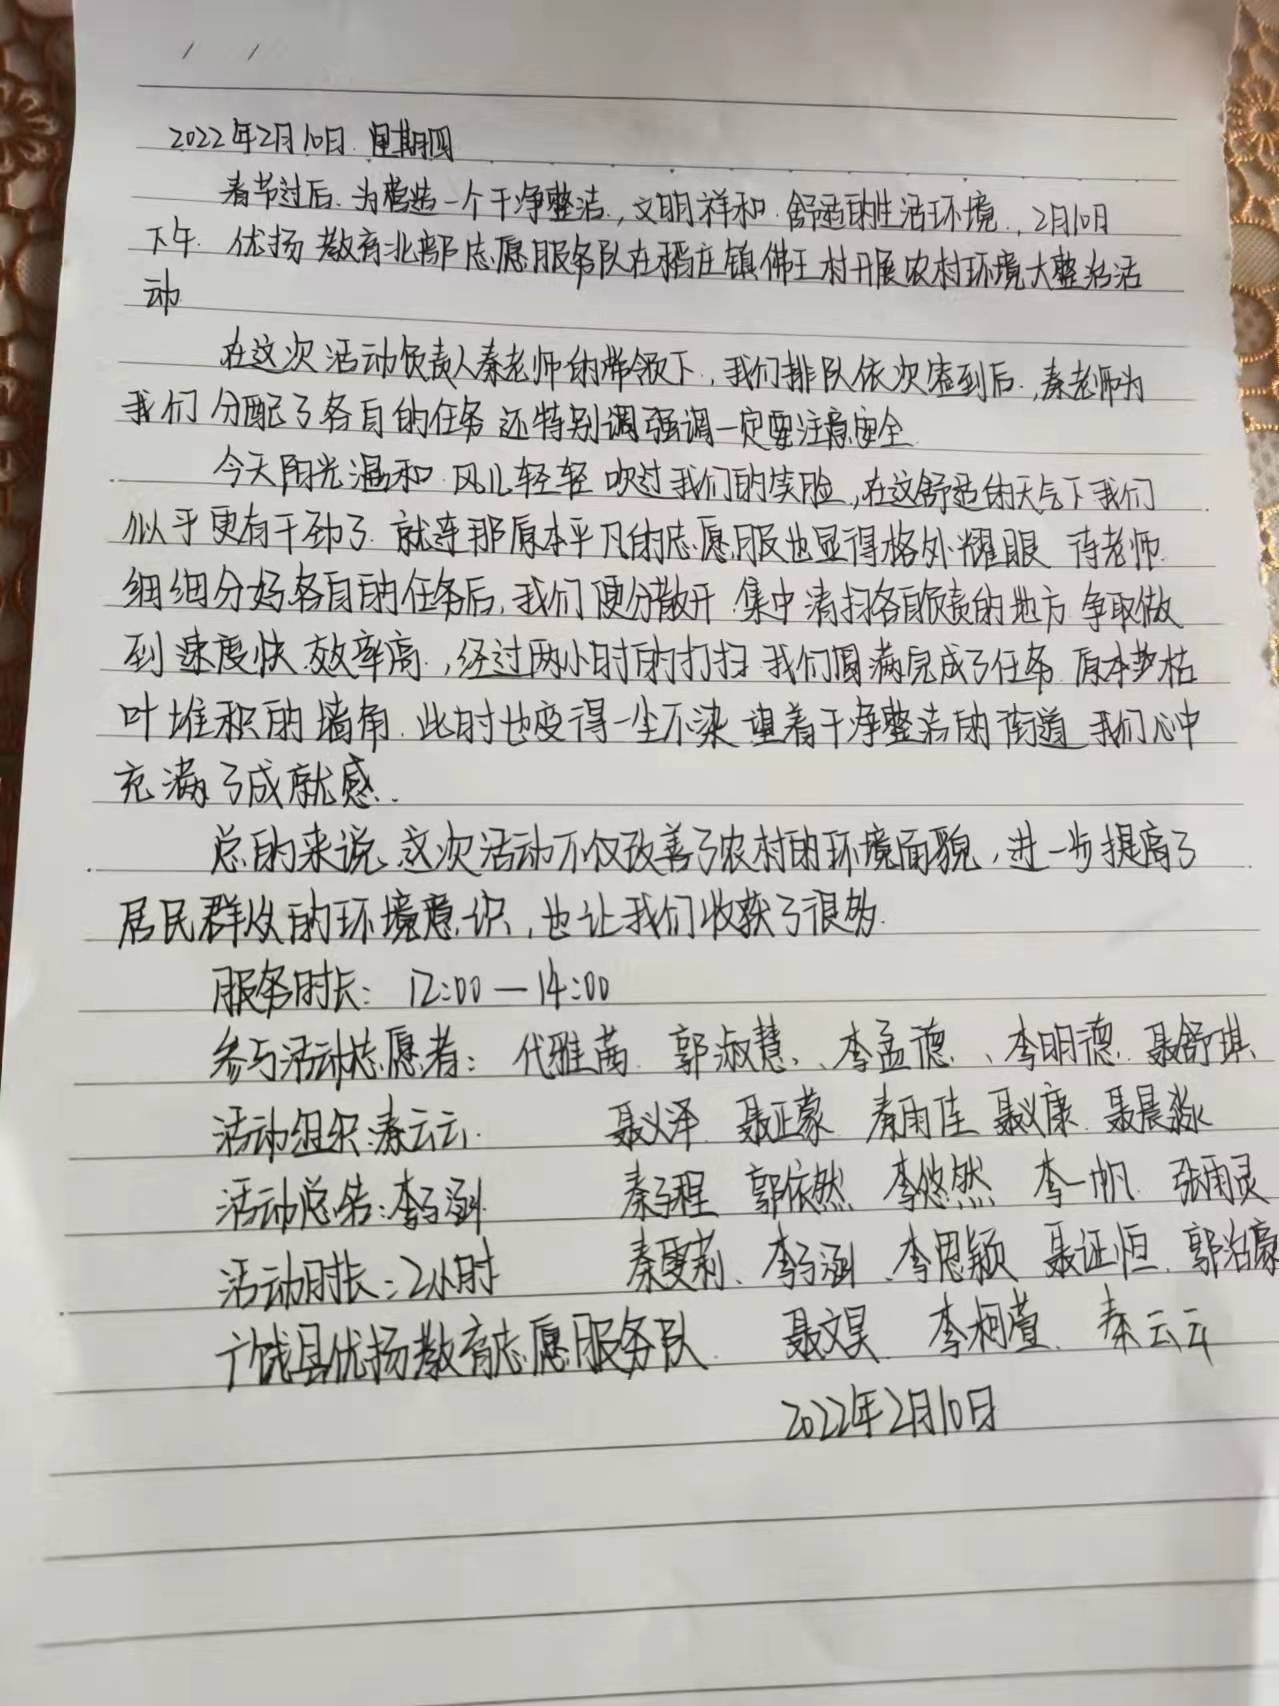 2022年2月10日 星期四
春节过后.为营造一个干净整洁,文明祥和.舒适的生活环境.,2月10日
下午.优扬教育北部志愿服务队在稻庄镇佛王村开展农村环境大整治活
动
在这次活动负责人秦老师的带领下,我们排队依次签到后,秦老师为
我们分配了各自的任务 还特别调强调一定要注意安全
今天阳光温和.风儿轻轻吹过我们的笑脸,在这舒适的天气下我们
似乎更有干劲了.就连那原本平凡的志愿服也显得格外耀眼 待老师
细细分好各自的任务后,我们便分散开.集中清扫各自负责的地方 争取做
到速度快 效率高.,经过两小时的打扫 我们圆满完成了任务 原本枯
叶堆积的墙角.此时也变得一尘不染 望着干净整洁的街道 我们心中
充满了成就感.
总的来说,这次活动不仅改善了农村的环境面貌,进一步提高了
居民群众的环境意识,也让我们收获了很多.
服务时长: 12:00—14:00
参与活动志愿者: 代雅茜 郭淑慧、李孟德、李明德 聂舒琪
活动组织:秦云云. 聂义泽 聂正蒙 秦雨佳 聂义康 聂晨淼
活动总告:李子涵 秦子程 郭依然 李悠然 李一帆 张雨灵
活动时长:2小时 秦曼莉、李子涵、李思颖 聂证恒 郭治豪
广饶县优扬教育志愿服务队 聂文昊 李柯萱 秦云云
2022年2月10日